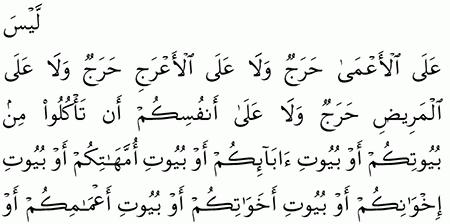 لَّيۡسَ
عَلَى ٱلۡأَعۡمَىٰ حَرَجٞ وَلَا عَلَى ٱلۡأَعۡرَجِ حَرَجٞ وَلَا عَلَى
ٱلۡمَرِيضِ حَرَجٞ وَلَا عَلَىٰٓ أَنفُسِكُمۡ أَن تَأۡكُلُواْ مِنۢ
بُيُوتِكُمۡ أَوۡ بُيُوتِ ءَابَآئِكُمۡ أَوۡ بُيُوتِ أُمَّهَٰتِكُمۡ أَوۡ بُيُوتِ
إِخۡوَٰنِكُمۡ أَوۡ بُيُوتِ أَخَوَٰتِكُمۡ أَوۡ بُيُوتِ أَعۡمَٰمِكُمۡ أَوۡ